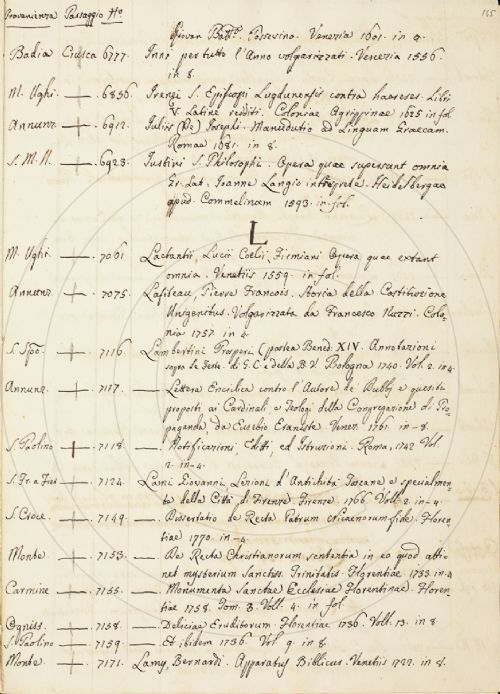 Provenienza Passaggio No. 165
Giovan Batt. Possevino. Venezia 1601. in 4.
Badia Crusca 6777. Inni per tutto l'Anno volgarizzati. Venezia 1556.
in 8.
M. Ughi. 6856 Irenei S. Episcopi Lugdunensis contra haereses. Libri
V. Latine redditi. Coloniae Agrippinae 1625 in fol.
Annunz. 6912. Julii (De) Josephi. Manuductio ad Linguam Graecam.
Romae 1681. in 8.
S. M. N. 6923. Justini S. Philosophi. Opera quae supersunt omnia
Gr. Lat. Joanne Langio interprete. Heidelbergae
apud. Commelinum 1593. in fol.
L
M. Ughi. 7061 Lactantii, Lucii Coelii, Firmiani Opera quae extant
omnia. Venetiis 1559. in fol.
Annunz. 7075. Lafiteau, Pierre Francois. Storia della Costituzione
Unigenitus. Volgarizzata da Francesco Nuzzi. Colo-
nia 1757. in 4.
S. Spo. 7116. Lambertini Prosperi (postea Bened. XIV. Annotazioni
sopra le Feste di G. C. e della B. V. Bologna 1740. Vol. 2. in 4.
Annunz. 7117. — Lettera Enciclica contro l'Autore de Dubbj e quesiti
proposti ai Cardinali, e Teologi della Congregazione di Pro-
paganda, da Eusebio Eraniste. Venez. 1761. in - 8.
S. Paolino 7118. — Notificazioni, Editti, ed Istruzioni. Roma, 1742 Vol.
2. in - 4.
7124. Lami Giovanni, Lezioni d'Antichità Toscane e specialmen-
te della Città di Firenze. Firenze. 1766. Voll. 2. in - 4.
S. Croce. 7149. — Dissertatio de Recta Patrum Nicaenorum fide. Floren-
tiae 1770. in - 4.
Monte 7153. — De Recta Christianorum sententia in eo quod atti-
net mysterium Sanctiss. Trinitatis. Florentiae 1733. in 4
Carmine 7155. — Monumenta Sanctae Ecclesiae Florentinae. Floren-
tiae 1758. Tom. 3. Voll. 4. in fol.
Ogniss. 7158. — Deliciae Eruditorum Florentiae 1736. Voll. 13. in 8
S. Paolino 7159. — Et ibidem 1736. Vol. 9. in 8
Monte 7171. Lamy, Bernardi. Apparatus Biblicus. Venetiis 1722. in 4.